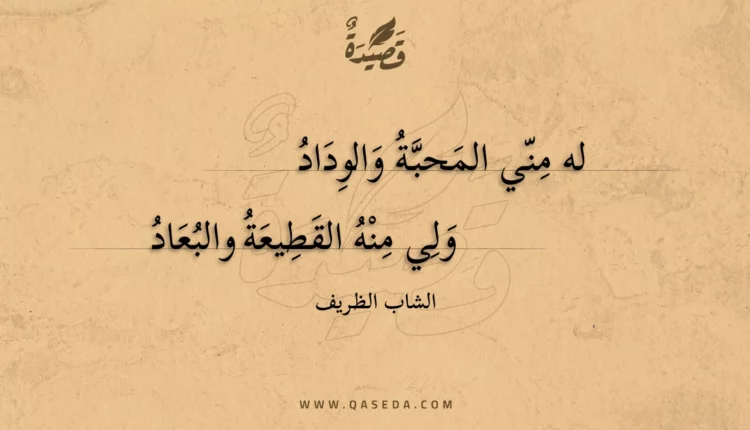 قَصِيْدَةٌ
له مِنّي المَحبَّةُ وَالوِدَادُ
وَلِي مِنْهُ القَطِيعَةُ والبُعَادُ
الشاب الظريف
WWW.QASEDA.COM